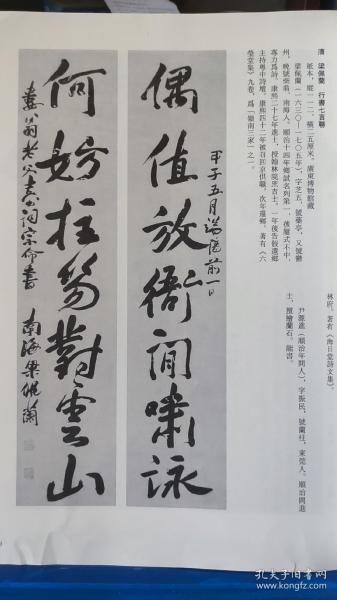 清　梁佩蘭　行書七言聯
紙本，縱一一二，橫二五厘米，廣東博物館藏
梁佩蘭（一六三〇—一七〇五年），字芝五，號藥亭，又號鬱
州，晚號柴翁，南海人。順治十四年鄉試名列第一，後屢試不中，
專力爲詩。康熙二十七年進士，授翰林院庶吉士，一年後告假還鄉，
主持粤中詩壇。康熙四十二年被召回京供職，次年還鄉。著有《六
瑩堂集》九卷，爲『嶺南三家』之一。
林府。著有《海日堂詩文集》。
尹源進（順治年間人），字振民，號蘭柱，東莞人。順治間進
士，擅繪蘭石，能書。
偶值放衙閒嘯詠
甲子五月端陽前一日
何妨拄笏對雲山
南海梁佩蘭
孔夫子旧书网